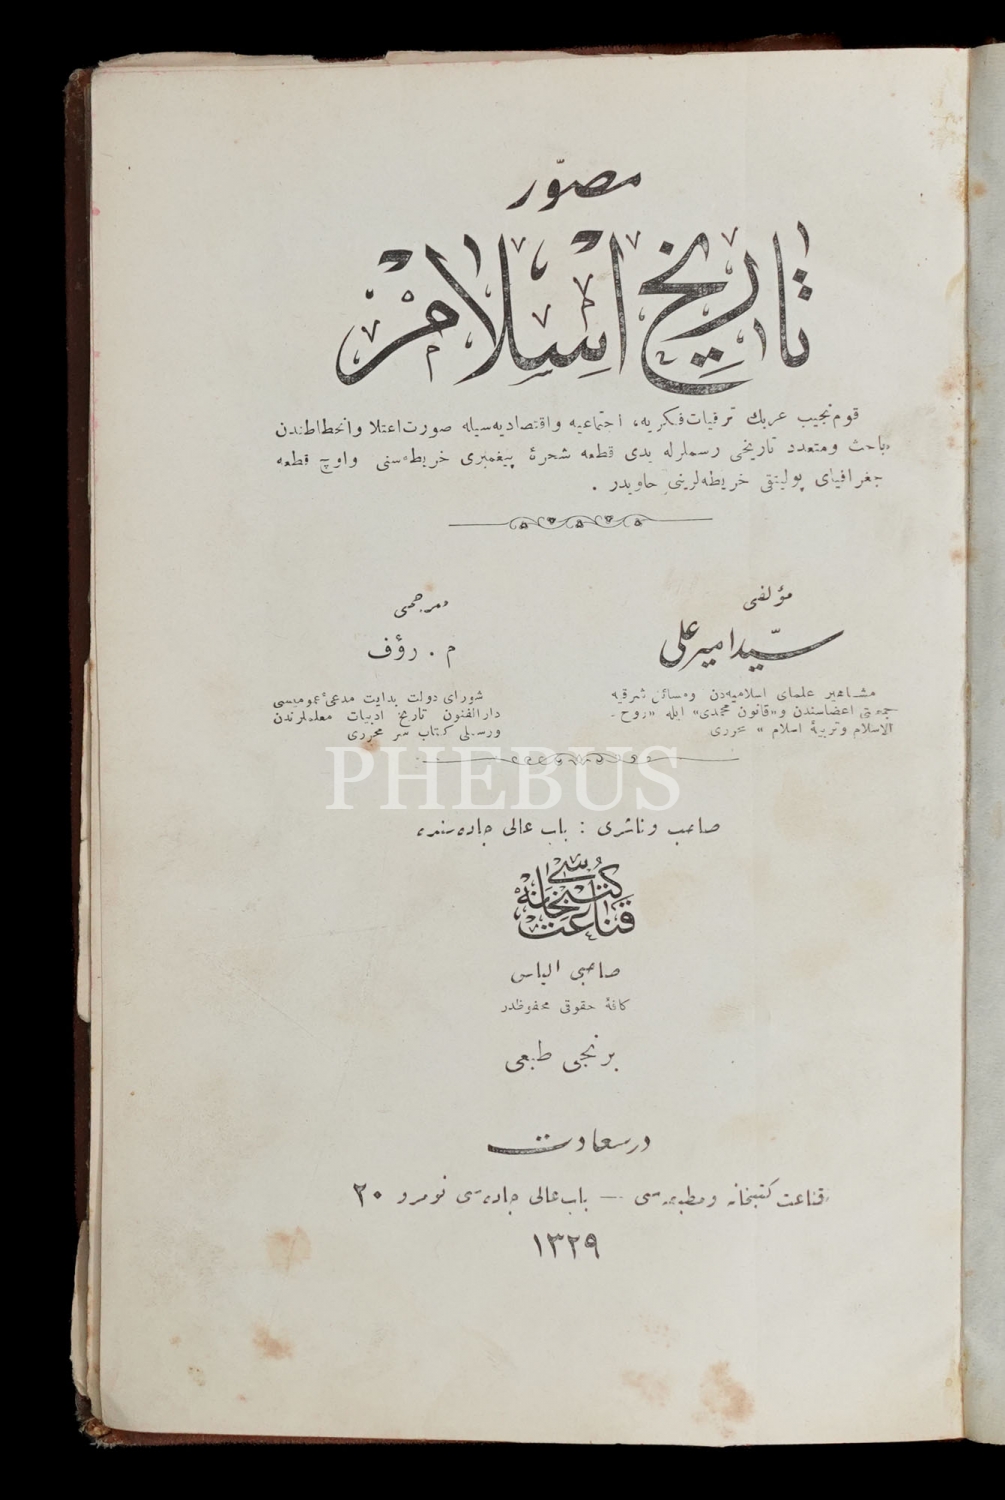 مصوّر
تاريخ اسلام
قوم نجيب عربك ترقيات فكريه، اجتماعيه واقتصاديه سيله صورت اعتلا وانحطاطندن
باحث ومتعدد تاريخى رسملرله يدى قطعه شجرهٔ پيغمبرى خريطه سنى واوچ قطعه
جغرافياى پوليتقى خريطه لرينى حاويدر .
مؤلفى
سيّد امير على
مشاهير علماى اسلاميه دن ومسائل شرقيه
جمعيتى اعضاسندن و «قانون محمدى» ايله «روح
الاسلام وتربيهٔ اسلام » محررى
مترجمى
م . رؤف
شوراى دولت بدايت مدعئ عموميسى
دار الفنون تاريخ ادبيات معلملرندن
ورسملى كتاب سر محررى
PHEBUS
صاحب وناشرى : باب عالى جاده سنده
قناعت كتبخانه سى
صاحبى الياس
كافهٔ حقوقى محفوظدر
برنجى طبعى
درسعادت
قناعت كتبخانه ومطبعه سى — باب عالى جاده سى نومرو ٢٠
١٣٢٩